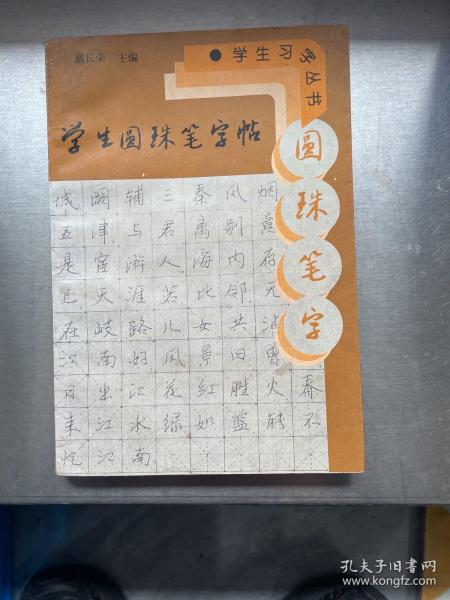 主编
学生习字丛书
学生圆珠笔字帖
圆珠笔字
城阙辅三秦风烟
五津与君离别意
是宦游人海内存
已天涯若比邻无
在岐路儿女共沾
江南好风景旧曾
日出江花红胜火春
来江水绿如蓝能不
忆江南
孔夫子旧书网
www.kongfz.com